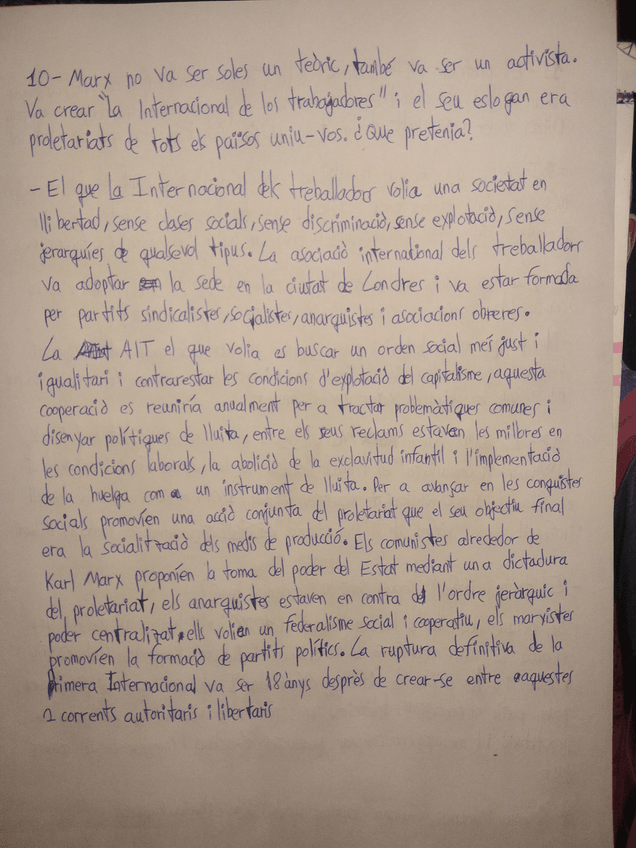 10- Marx no va ser soles un teòric, també va ser un activista.
Va crear "La Internacional de los trabajadores" i el seu eslogan era
proletariats de tots els països uniu-vos. ¿Que pretenia?
- El que la Internacional dels treballadors volia una societat en
llibertad, sense clases socials, sense discriminació, sense explotació, sense
jerarquíes de qualsevol tipus. La asociació international dels treballadors
va adoptar la sede en la ciutat de Londres i va estar formada
per partits sindicalistes, socialistes, anarquistes i asociacions obreres.
La AIT el que volia es buscar un orden social méś just i
igualitari i contrarestar les condicions d'explotació del capitalisme, aquesta
cooperació es reuniría anualment per a tractar problemàtiques comunes i
disenyar polítiques de lluita, entre els seus reclams estaven les milores en
les condicions laborals, la abolició de la exclavitud infantil i l'implementació
de la huelga com a un instrument de lluita. Per a avançar en les conquistes
socials promovíen una acció conjunta del proletariat que el seu objectiu final
era la socialització dels medis de producció. Els comunistes alrededor de
Karl Marx proponíen la toma del poder del Estat mediant una dictadura
del proletariat, els anarquistes estaven en contra de l'ordre jeràrquic i
poder centralitzat, ells volien un federalisme social i cooperatiu, els marxistes
promovíen la formació de partits polítics. La ruptura definitiva de la
Primera Internacional va ser 18 ànys desprès de crear-se entre aquestes
2 corrents autoritaris i libertaris